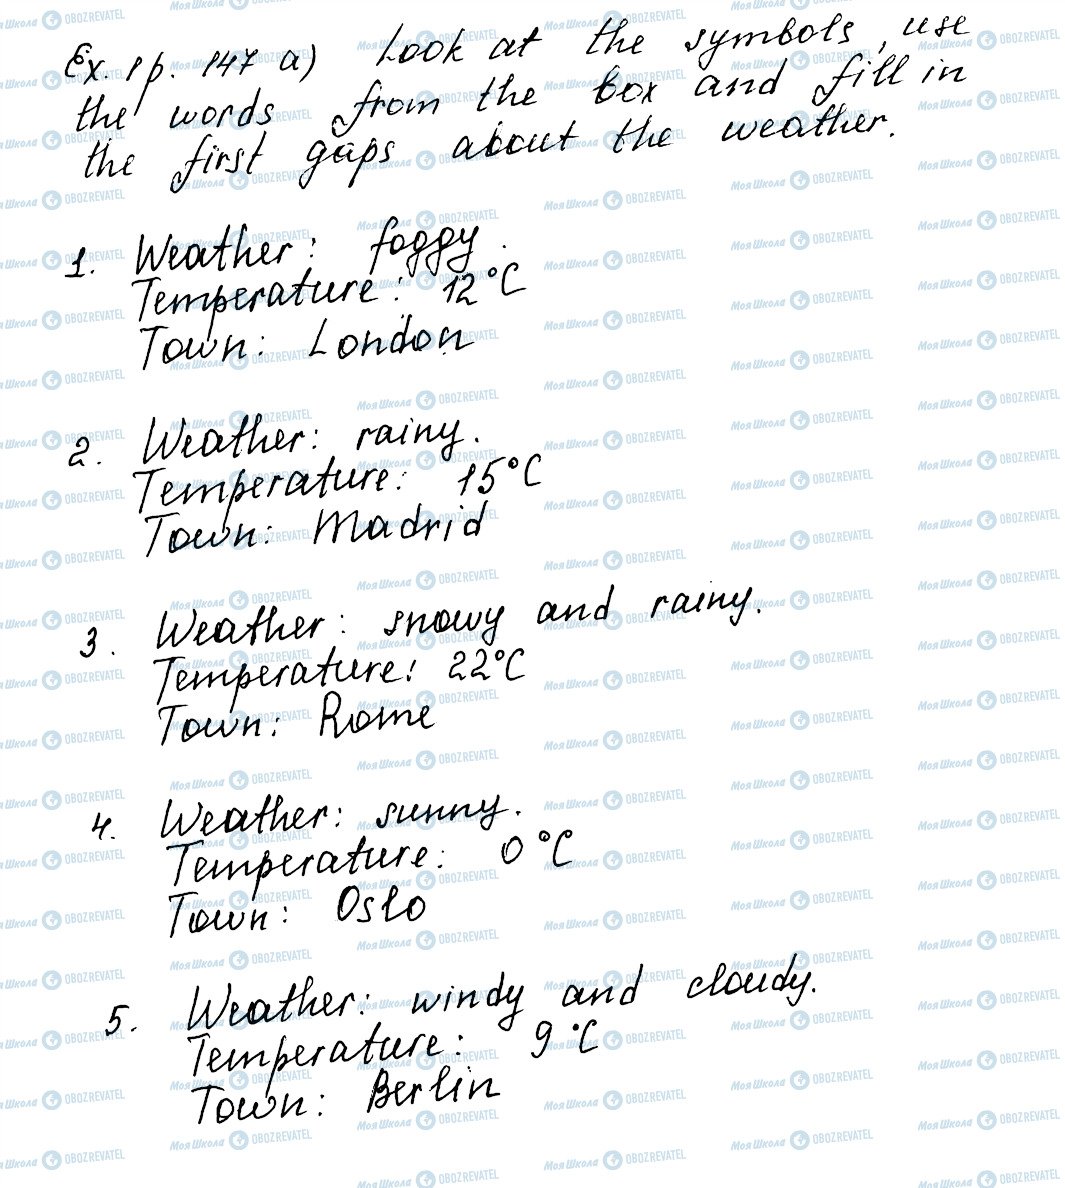 Ex. 1 p. 147 a) Look at the symbols, use
the words from the box and fill in
the first gaps about the weather.
1. Weather: foggy.
Temperature: 12°C
Town: London
2. Weather: rainy.
Temperature: 15°C
Town: Madrid
3. Weather: snowy and rainy.
Temperature: 22°C
Town: Rome
4. Weather: sunny.
Temperature: 0°C
Town: Oslo
5. Weather: windy and cloudy.
Temperature: 9°C
Town: Berlin
МояШкола OBOZREVATEL